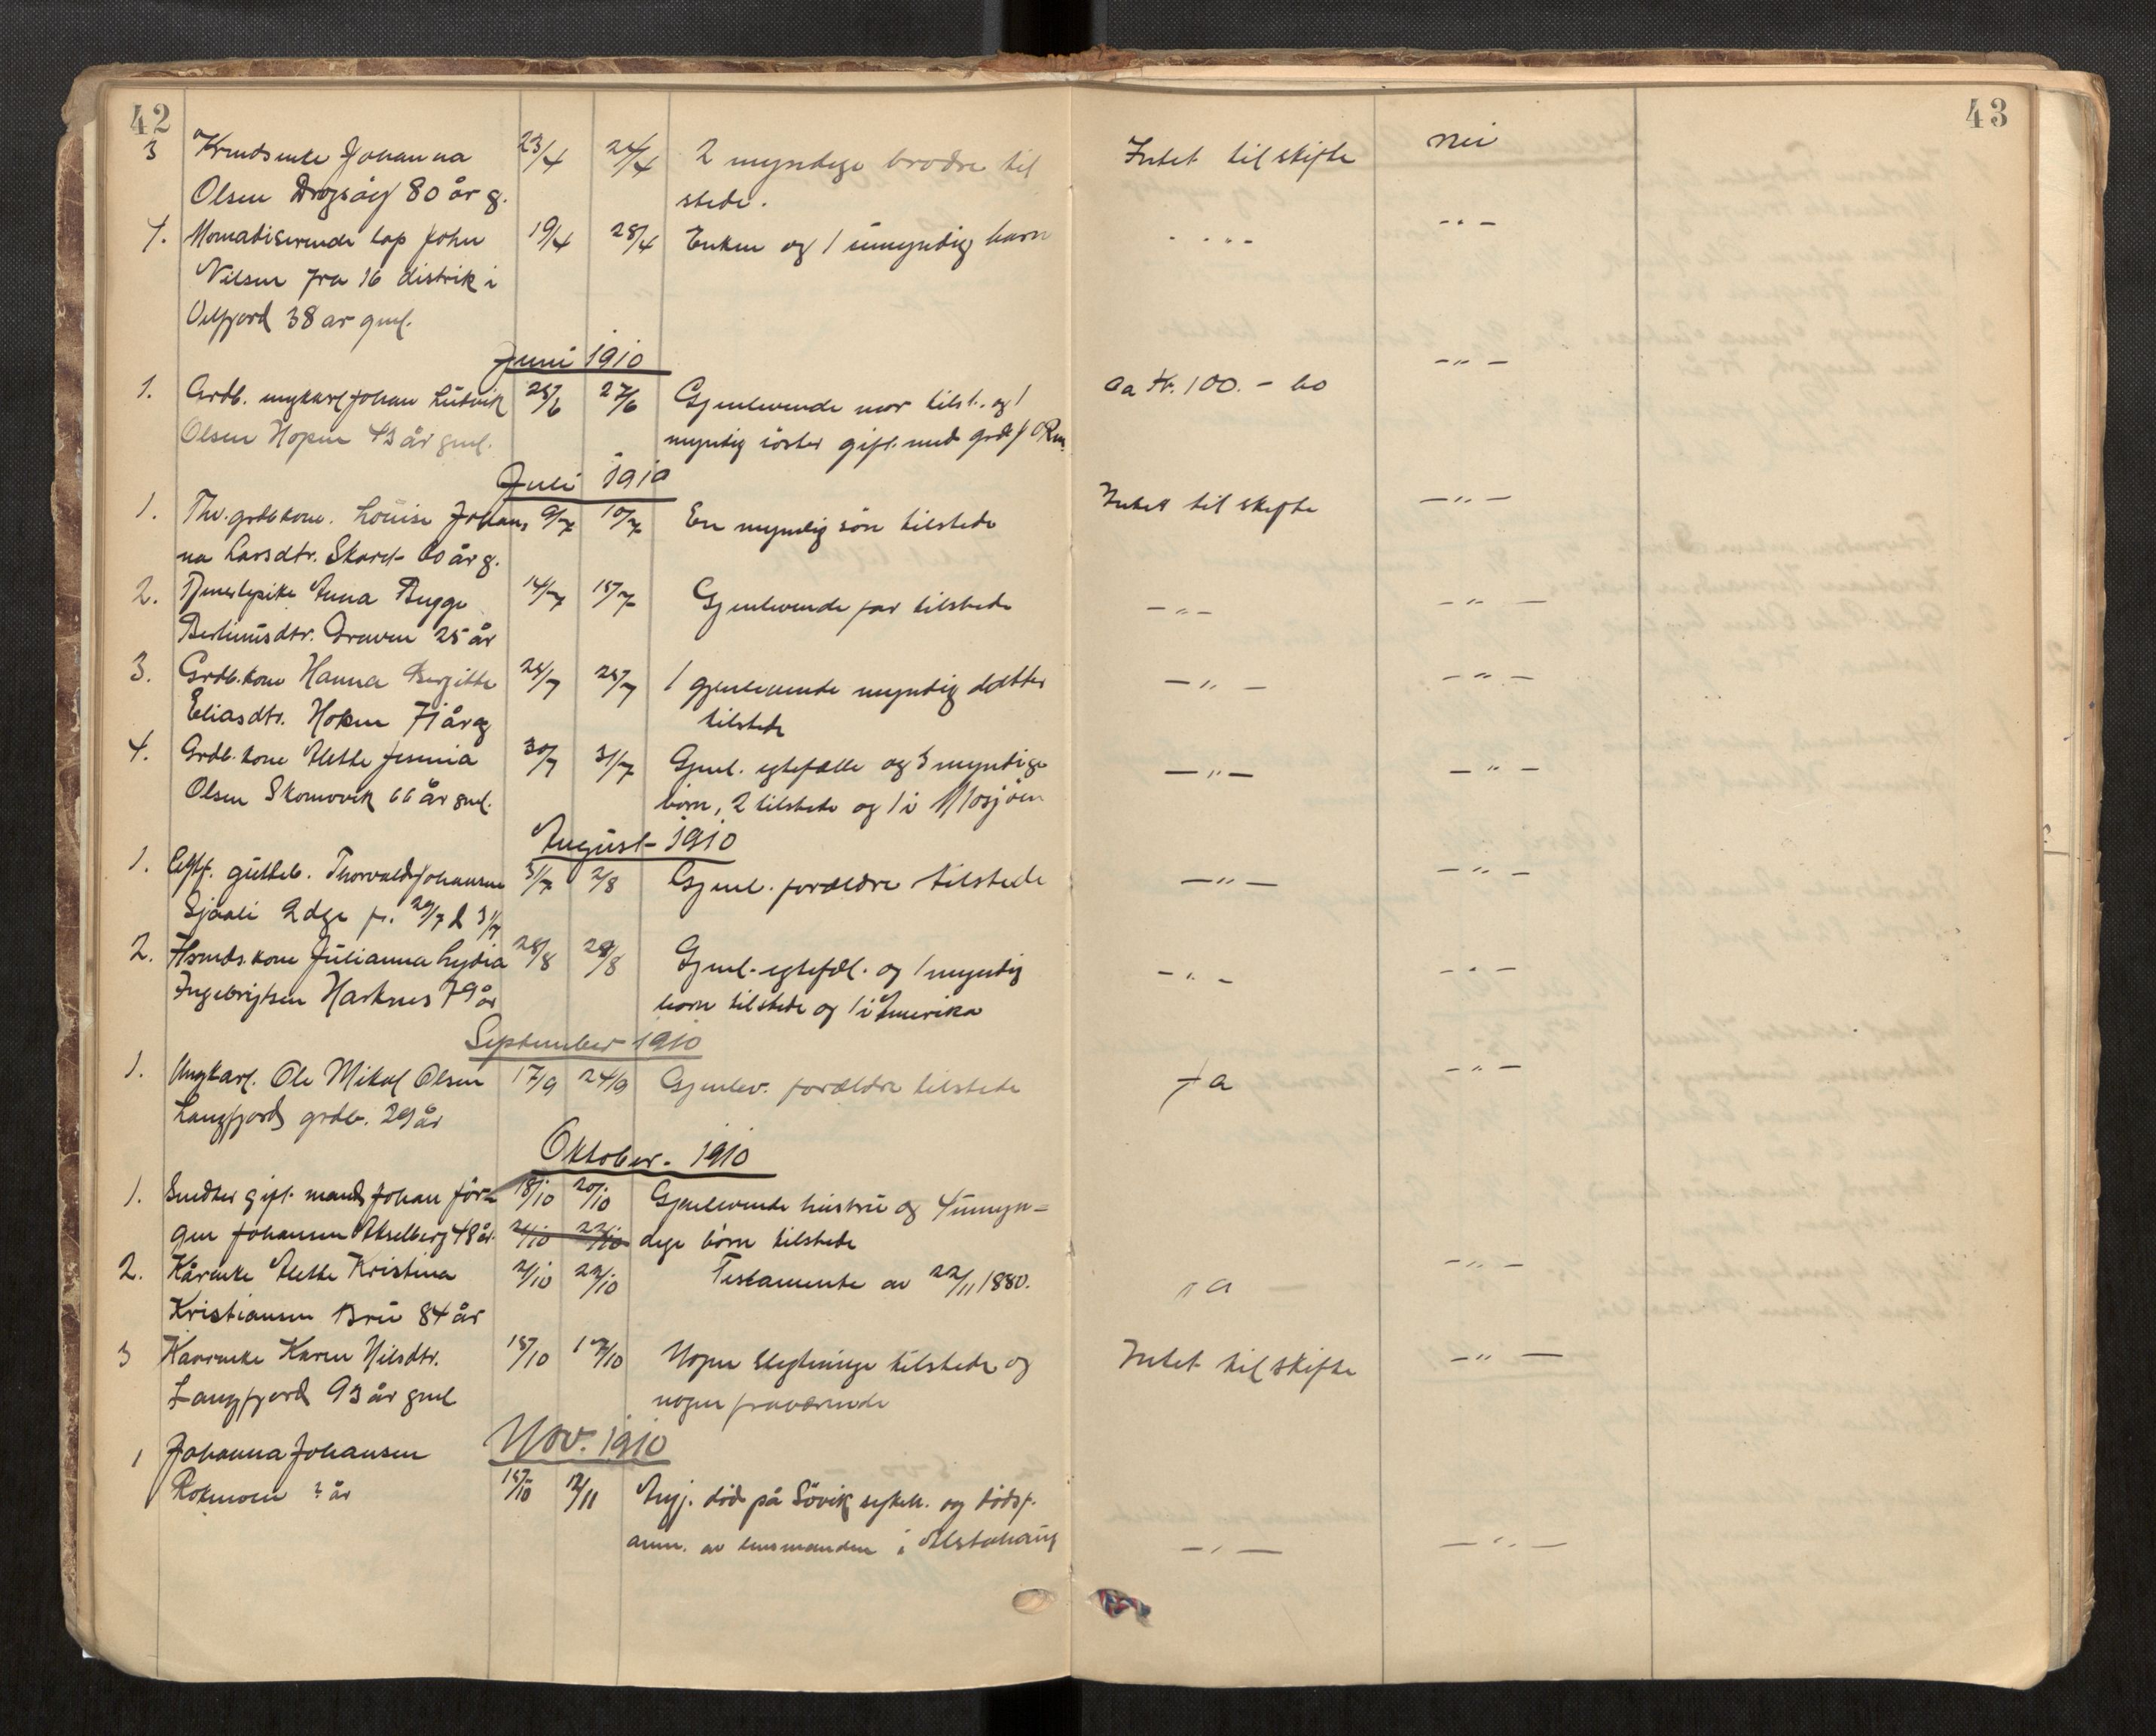 42
43
3 Krmdsenke Johanna 23/4 24/4 2 myndige brödre til Intet til skifte nei
Olsen 80 år g. stede.
4. Nomadiserende lap John 19/4 28/4 Enken og 1 umyndig barn - " - - " -
Nilsen fra 16 distrik i
Velfjord 38 ar gml.
Juni 1910
1. Grdb. ungkarl Johan Ludvik 25/6 27/6 Gjenlevende mor tilst. og 1 Ca Kr. 100.- bo - " -
Olsen Hopen 43 år gml. myndig söster gift. med
Juli 1910
1. grdbkone. Louise Johan, 9/7 10/7 En myndig sön tilstede Intet til skifte - " -
na Larsdtr. Skaret 60 år g.
2. Tjenestepike Anna Bugge 14/7 15/7 Gjenlevende far tilstede - " - - " -
Bertinusdtr. 25 år
3. Grdb. kone Hanna Bergitte 24/7 25/7 1 gjenlevende myndig datter - " - - " -
Eliasdtr. Hopen 71 år g tilstede
4. Grdb. kone Alette Jensina 30/7 31/7 Gjenl. egtefælle og 3 myndige - " - - " -
Olsen Skomovik 66 år gml. börn, 2 tilstede og 1 i Mosjöen
August 1910
1. Egtf. gutteb. Thorvald Johansen 31/7 2/8 Gjenl. forældre tilstede - " - - " -
Sjåali 2 dge f. 29/7 d 31/7
2. Hsmds. kone Julianna Lydia 28/8 29/8 Gjenl. egtefæl. og 1 myndig - " - - " -
Ingebrigtsen Harknes 79 år barn tilstede og 1 i Amerika
September 1910
1. Ungkarl. Ole Mikal Olsen 17/9 24/9 Gjenlev. forældre tilstede ja - " -
Langfjord grdb. 29 år
Oktober. 1910
1. gift. mand Johan Jör- 18/10 20/10 Gjenlevende hustru og 4 umyn-
gen Johansen Akselberg 48 år. 21/10 22/10 dige börn tilstede
2. Kårenke Alette Kristina 21/10 22/10 Testamente av 22/11 1880. ja - " -
Kristiansen Bru 84 år
3 Kaarenke Karen Nilsdtr. 15/10 17/10 Nogen slegtninge tilstede og Intet til skifte - " -
Langfjord 93 år gml nogen fraværende
Nov. 1910
1 Johanna Johansen
? år 15/10 12/11 Angj. död på Sövik sykeh. og dödsf.
anm. av lensmanden i Alstahaug - " - - " -